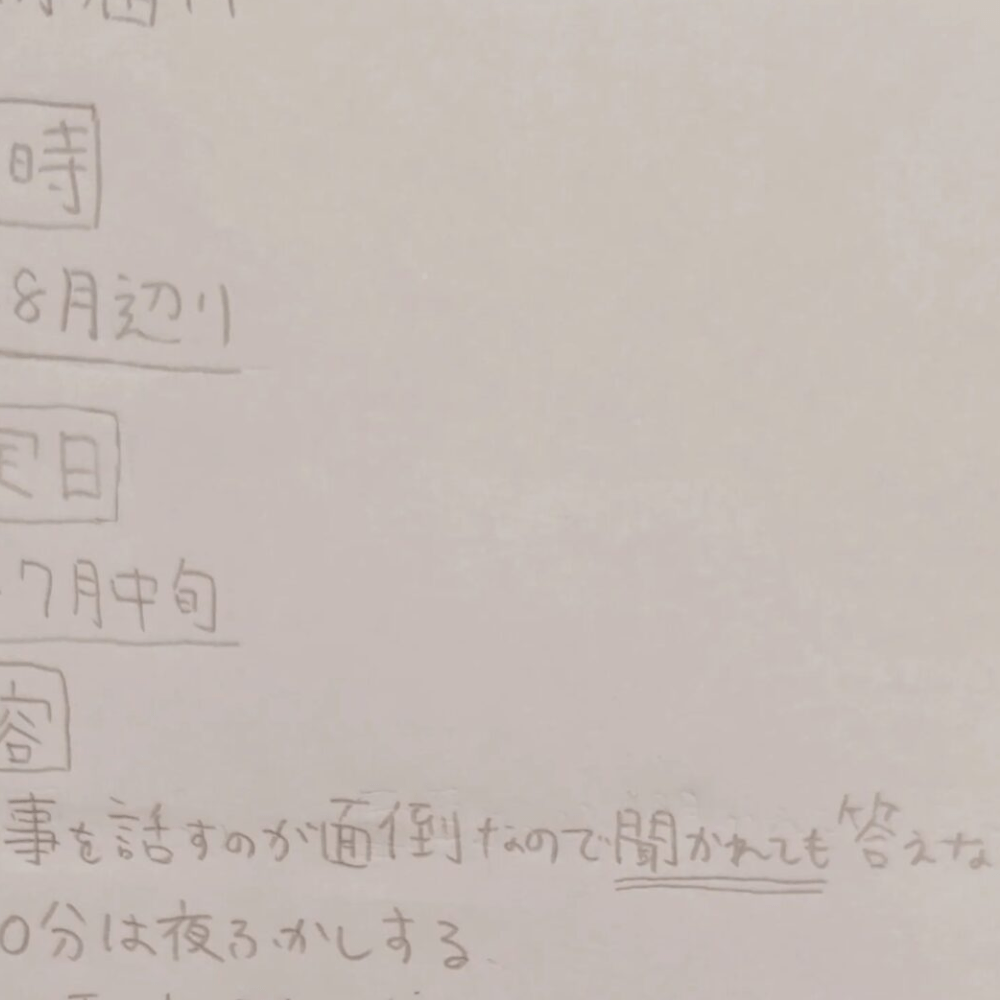 時
8月辺り
定日
7月中旬
容
事を話すのが面倒なので聞かれても答えな
0分は夜ふかしする